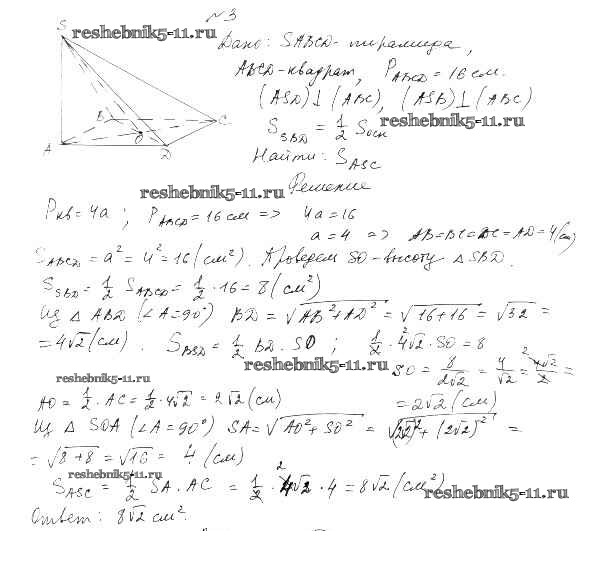 №3
S
reshebnik5-11.ru
Дано: SABCD - пирамида,
ABCD - квадрат, P_ABCD = 16 см.
(ASD) ⊥ (ABC), (ASB) ⊥ (ABC)
reshebnik5-11.ru
S_SBD = 1/2 S_осн
B C
O
A D
Найти: S_ASC
reshebnik5-11.ru
Решение
P_кв = 4a ; P_ABCD = 16 см => 4a = 16
a = 4 => AB = BC = DC = AD = 4 (см)
S_ABCD = a² = 4² = 16 (см²). Проведем SO - высоту △ SBD.
S_SBD = 1/2 S_ABCD = 1/2 · 16 = 8 (см²)
Из △ ABD (∠A = 90°) BD = √(AB² + AD²) = √(16 + 16) = √32 =
= 4√2 (см). S_BSD = 1/2 BD · SO ; 1/2 · 4√2 · SO = 8
2
reshebnik5-11.ru
SO = 8/(2√2) = 4/√2 = 4√2/2 =
2
reshebnik5-11.ru
AO = 1/2 · AC = 1/2 · 4√2 = 2√2 (см)
= 2√2 (см)
Из △ SOA (∠A = 90°) SA = √(AO² + SO²) = √((2√2)² + (2√2)²) =
= √(8 + 8) = √16 = 4 (см)
reshebnik5-11.ru
S_ASC = 1/2 SA · AC = 1/2 · 4√2 · 4 = 8√2 (см²)
2
reshebnik5-11.ru
Ответ: 8√2 см².